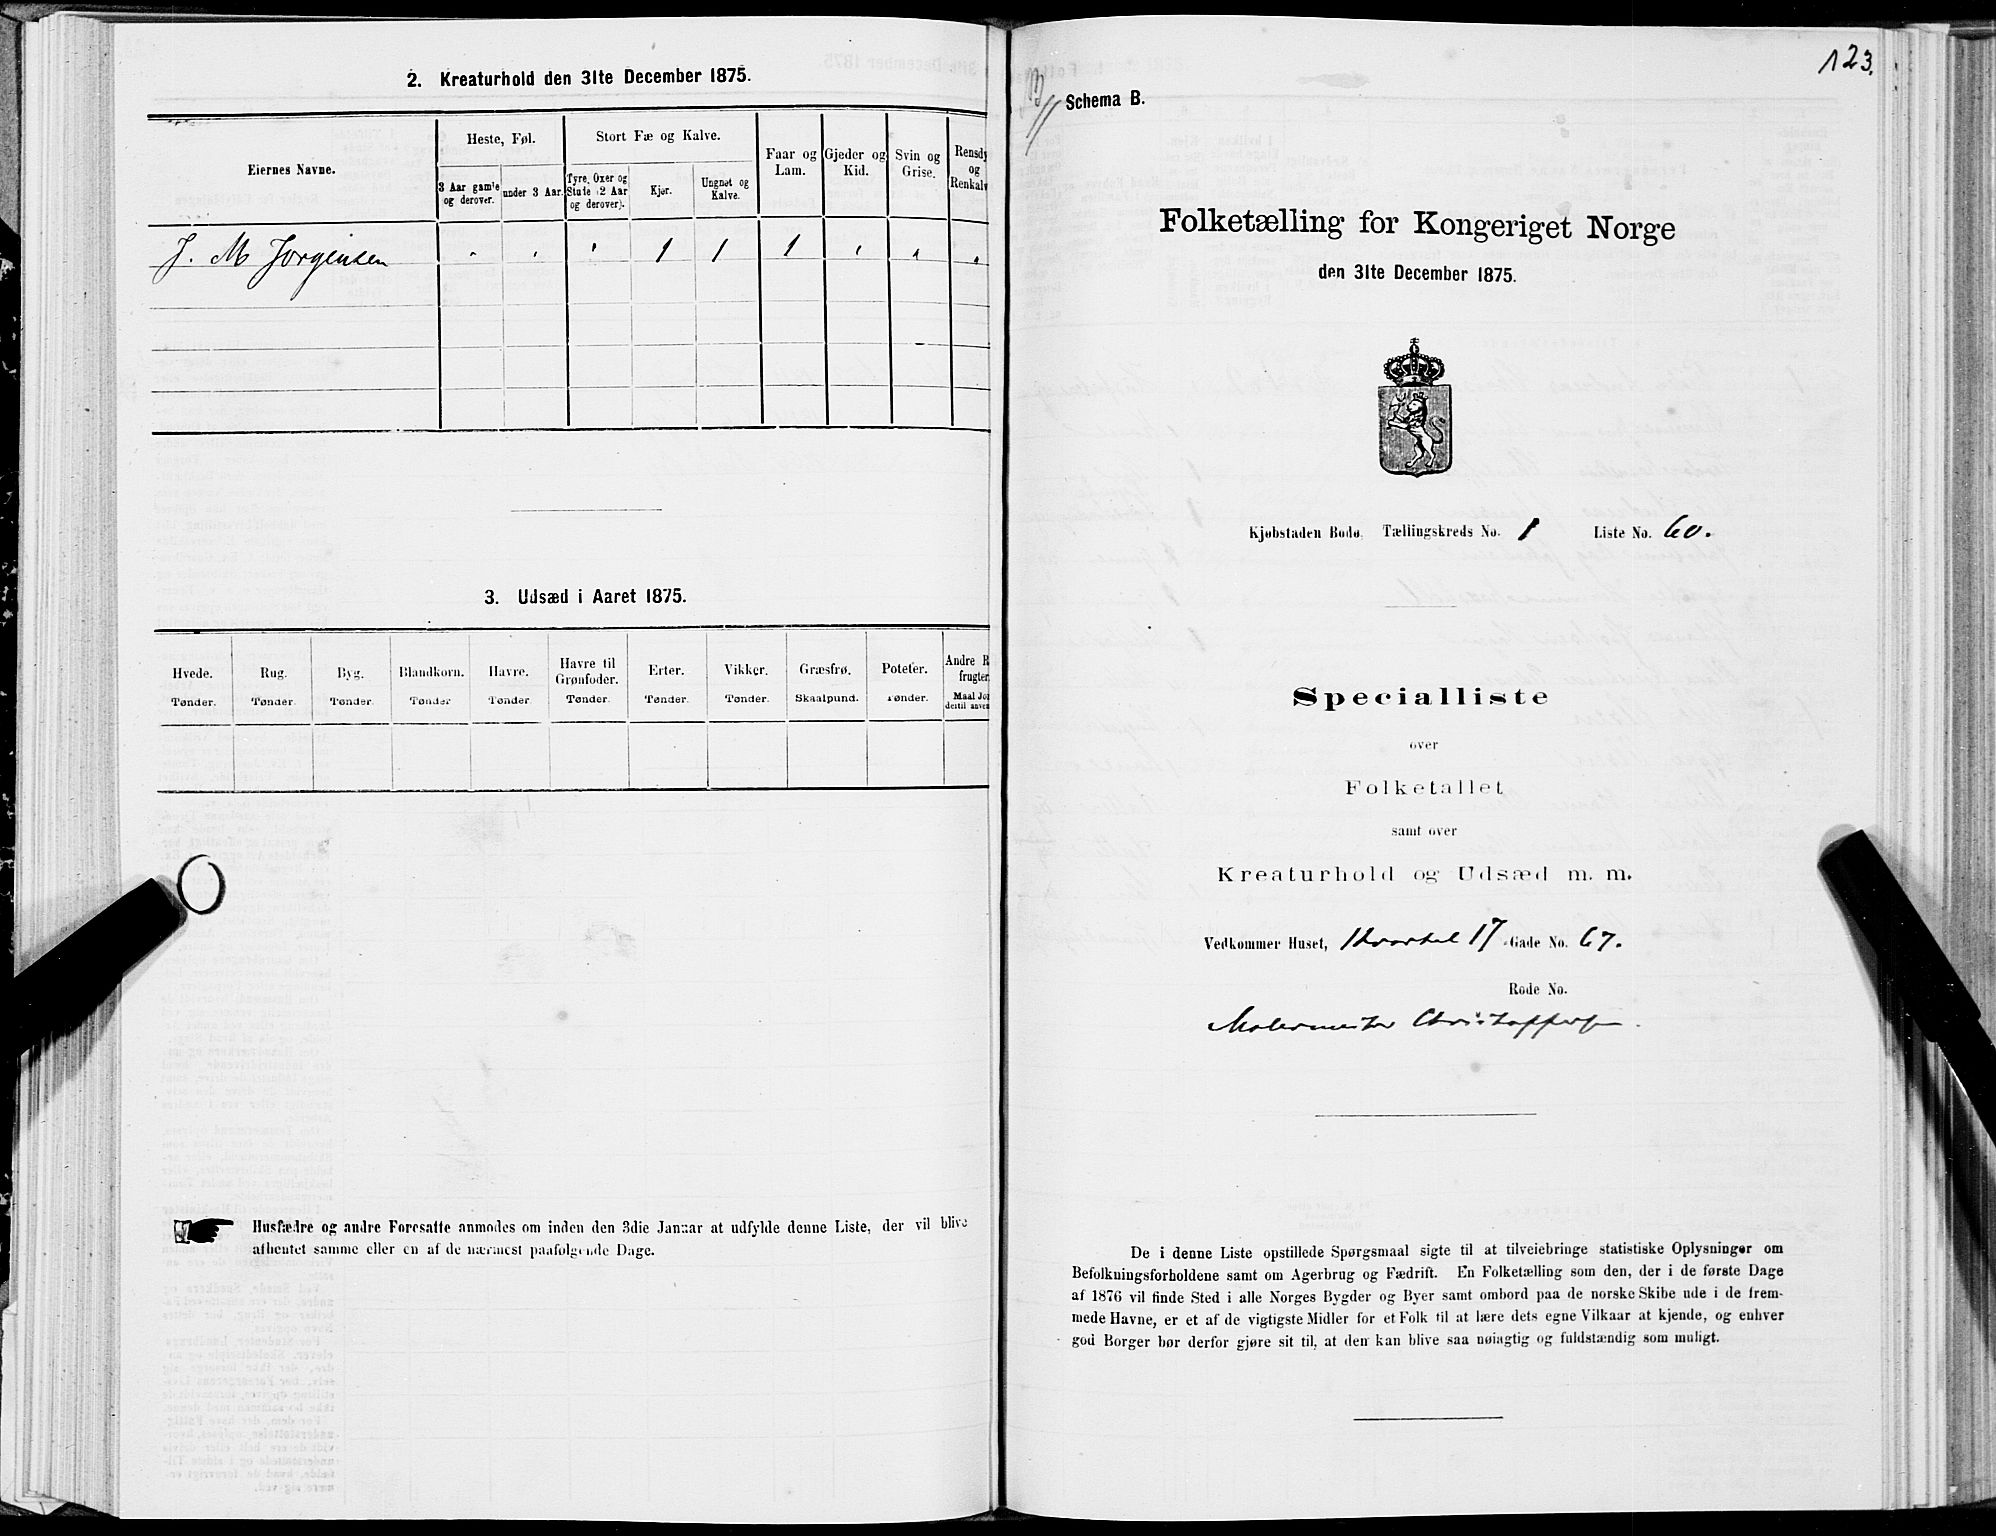 2. Kreaturhold den 31te December 1875.
Eiernes Navne.
Heste, Føl.
Stort Fæ og Kalve.
Faar og Lam.
Gjeder og Kid.
Svin og Grise.
Rensdy
og
Renkalv
3 Aar gamle og derover.
under 3 Aar.
Tyre, Oxer og Stude (2 Aar og derover).
Kjør.
Ungnøt og Kalve.
J. M Jorgensen " " " 1 1 1 " " "
3. Udsæd i Aaret 1875.
Hvede. Rug. Byg. Blandkorn. Havre. Havre til Grønfoder. Erter. Vikker. Græsfrø. Poteter. Andre R
frugter
Tønder. Tønder. Tønder. Tønder. Tønder. Tønder. Tønder. Tønder. Skaalpund. Tønder. Maal Jor
dertil anven
Husfædre og andre Foresatte anmodes om inden den 3die Januar at udfylde denne Liste, der vil blive
afhentet samme eller en af de nærmest paafølgende Dage.
123.
Schema B.
Folketælling for Kongeriget Norge
den 31te December 1875.
Kjøbstaden Bodø. Tællingskreds No. 1 Liste No. 60.
Specialliste
over
Folketallet
samt over
Kreaturhold og Udsæd m. m.
Vedkommer Huset, Kvartal 17 Gade No. 67.
Rode No.
Malermester Christoffersen.
De i denne Liste opstillede Spørgsmaal sigte til at tilveiebringe statistiske Oplysninger om
Befolkningsforholdene samt om Agerbrug og Fædrift. En Folketælling som den, der i de første Dage
af 1876 vil finde Sted i alle Norges Bygder og Byer samt ombord paa de norske Skibe ude i de frem-
mede Havne, er et af de vigtigste Midler for et Folk til at lære dets egne Vilkaar at kjende, og enhver
god Borger bør derfor gjøre sit til, at den kan blive saa nøiagtig og fuldstændig som muligt.